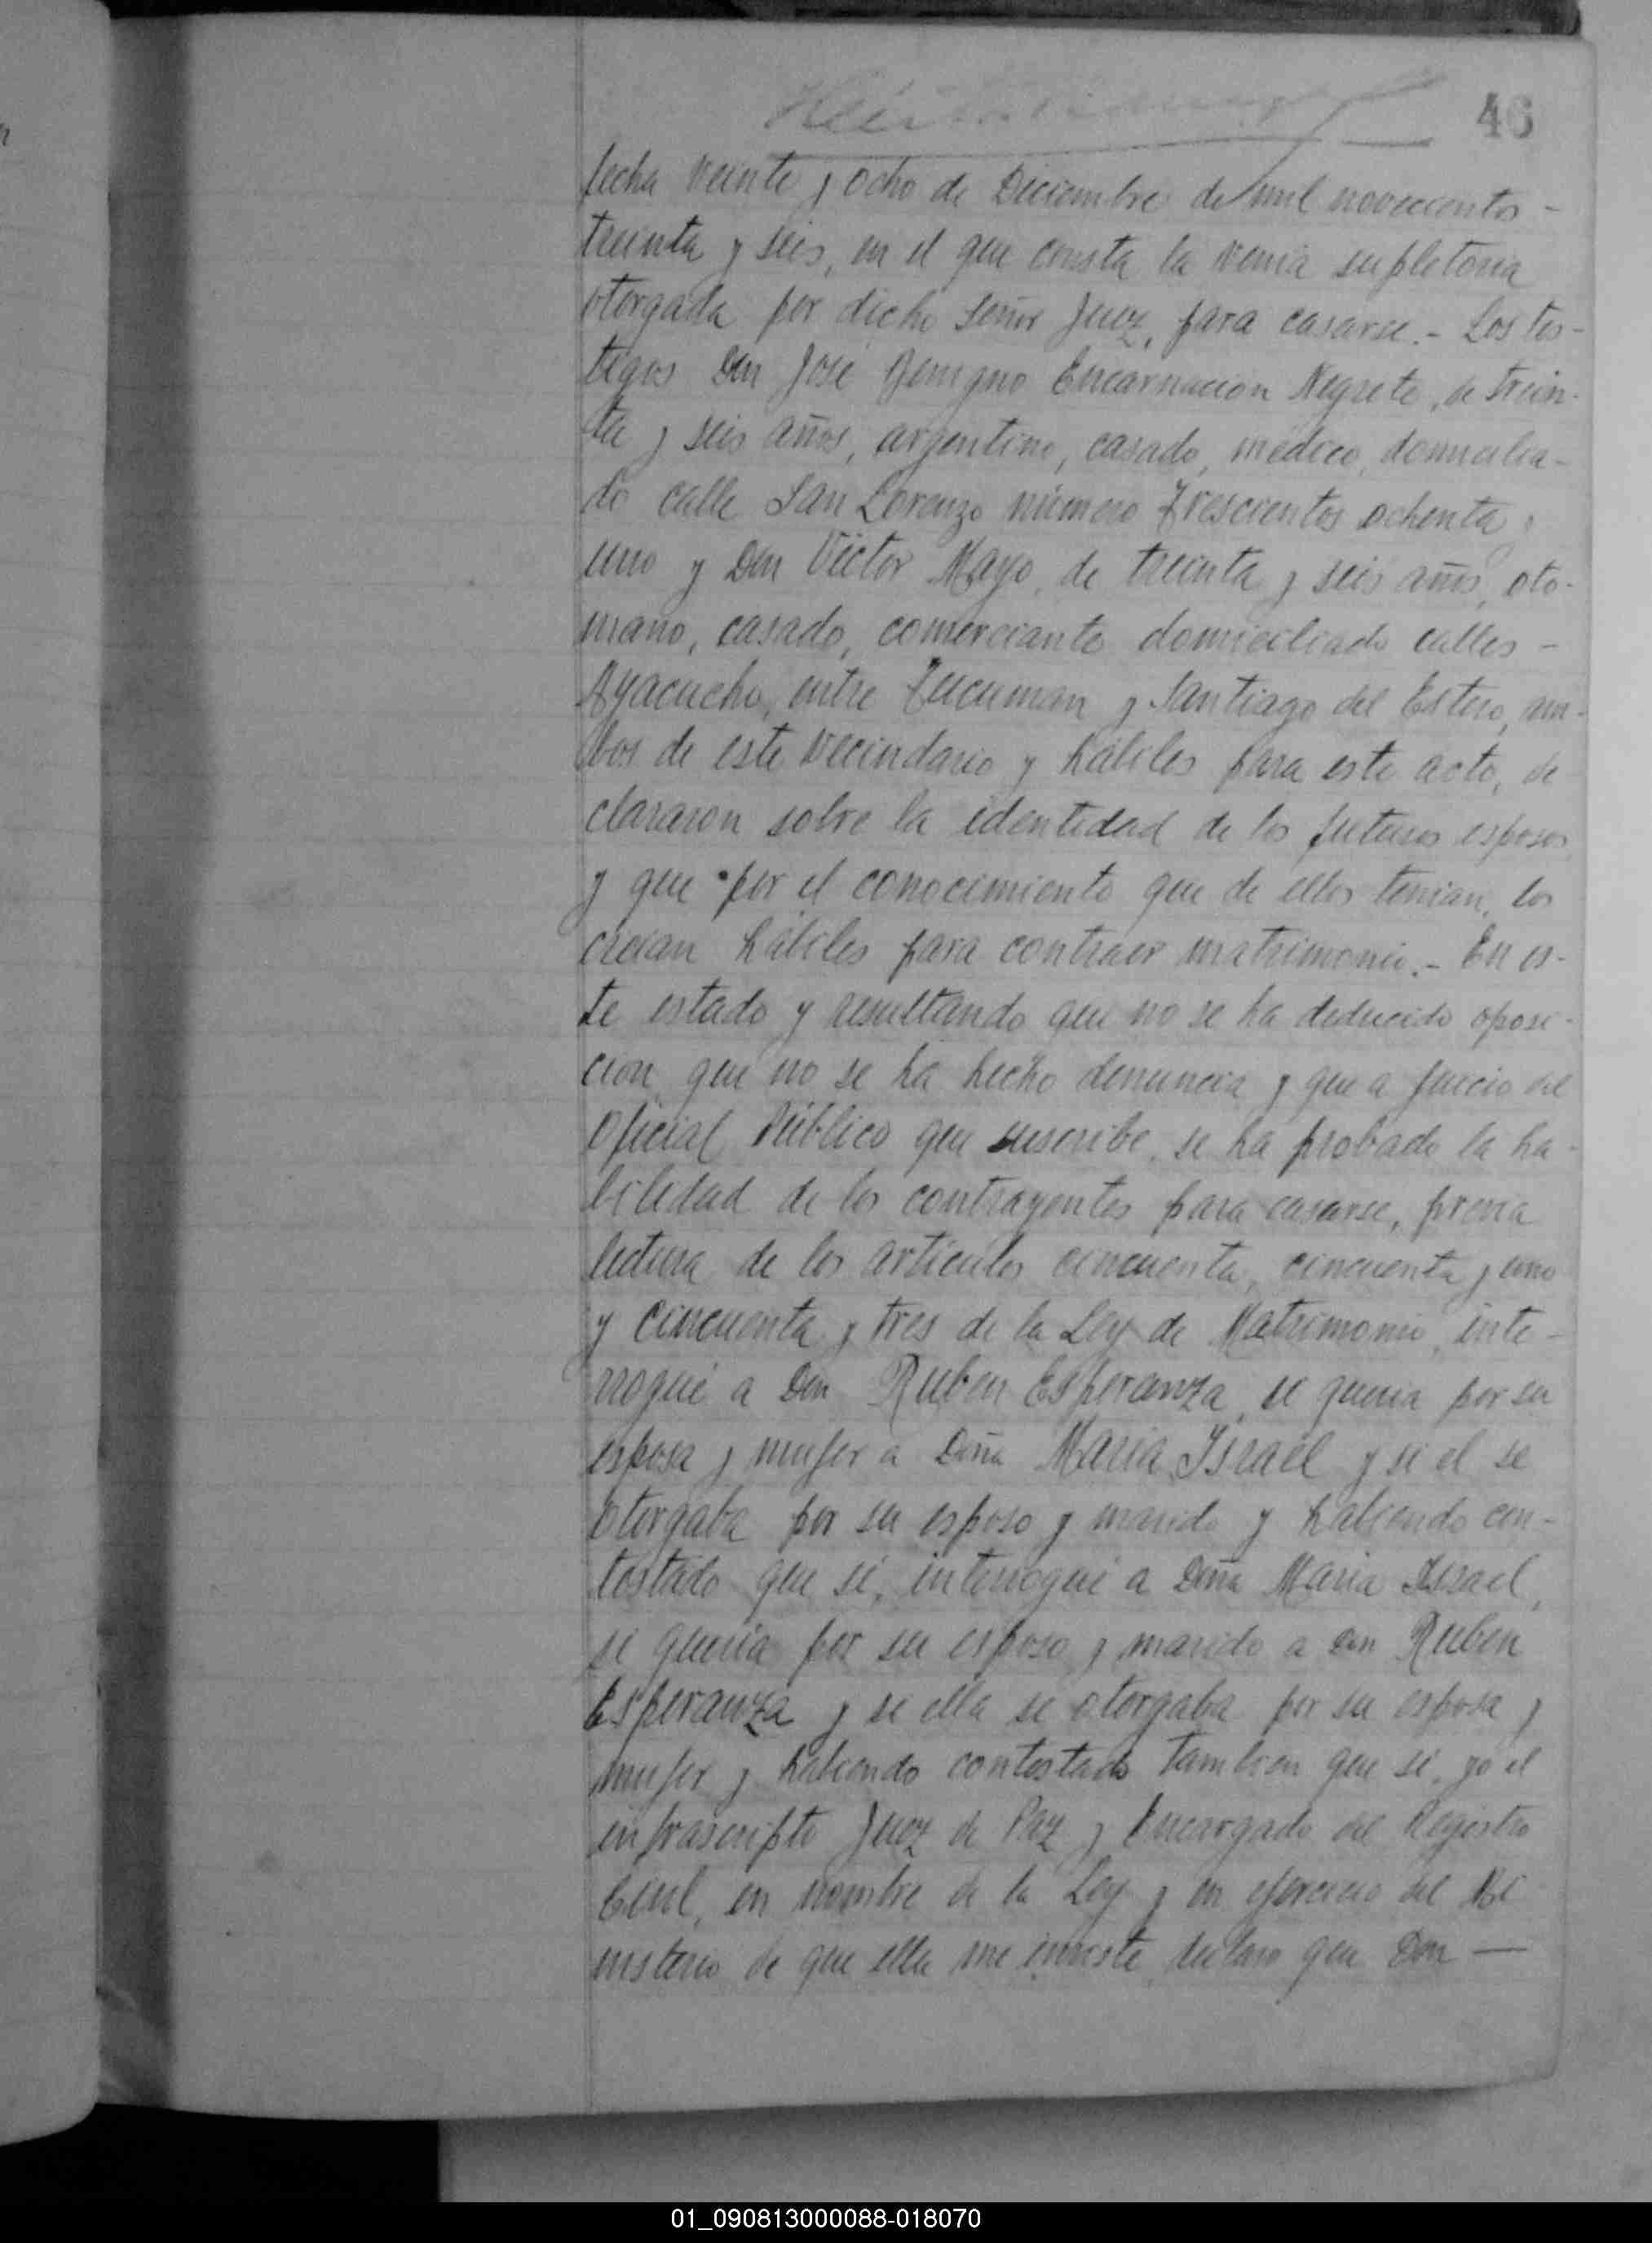 46
fecha veinte y ocho de Diciembre de mil novecientos -
treinta y seis, en el que consta la venia supletoria
otorgada por dicho Señor Juez, para casarse.- Los tes-
tigos Don José Benigno Encarnacion Negrete, de trein-
ta y seis años, argentino, casado, médico, domicilia-
do calle San Lorenzo número trescientos ochenta y
uno y Don Victor Mayo, de treinta y seis años, oto-
mano, casado, comerciante domiciliado calles -
Ayacucho, entre Tucuman y Santiago del Estero, am-
bos de este vecindario y hábiles para este acto, de
clararon sobre la identidad de los futuros esposos
y que por el conocimiento que de ellos tenian, los
creian hábiles para contraer matrimonio.- En es-
te estado y resultando que no se ha deducido oposi-
cion, que no se ha hecho denuncia y que a juicio del
Oficial Público que suscribe, se ha probado la ha-
bilidad de los contrayentes para casarse, previa
lectura de los artículos cincuenta, cincuenta y uno
y cincuenta y tres de la Ley de Matrimonio, inte-
rrogué a Don Ruben Esperanza, si queria por su
esposa y mujer a Doña Maria Israel y si el se
otorgaba por su esposo y marido y habiendo con-
testado que sí, interrogué a Doña Maria Israel,
si queria por su esposo y marido a Don Ruben
Esperanza y si ella se otorgaba por su esposa y
mujer y habiendo contestado tambien que si, yo el
infrascripto Juez de Paz y Encargado del Registro
Civil, en nombre de la Ley y en ejercicio del Mi
nisterio de que ella me inviste, declaro que Don —
01_090813000088-018070